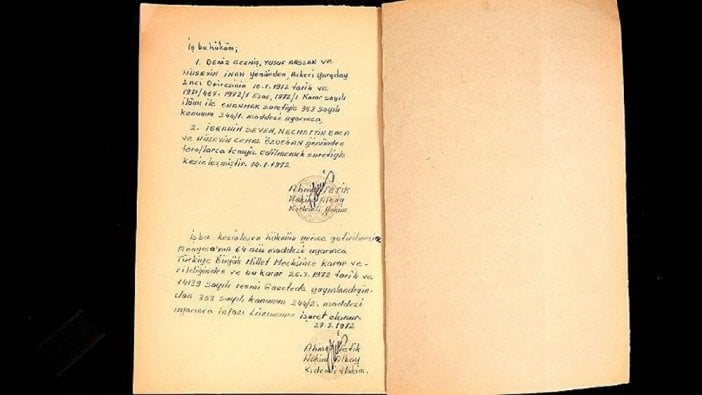 iş bu hüküm;
1. DENİZ GEZMİŞ, YUSUF ARSLAN VE
HÜSEYİN İNAN yönünden, Askeri Yargıtay
2nci Dairesinin 10.1.1972 tarih ve
1971/457-1972/1 Esas, 1972/1 Karar sayılı
ilâmı ile ONANMAK suretiyle 353 sayılı
kanunun 244/1. maddesi uyarınca,
2. İBRAHİM SEVEN, NECMETTİN BACA
ve HÜSEYİN CEMAL ÖZDOĞAN yönünden
taraflarca temyiz edilmemek suretiyle
kesinleşmiştir. 10.1.1972
Ahmet TETİK
Hâkim Albay
Kıdemli Hâkim
iş bu kesinleşen hükmün yerine getirilmesine
Anayasa'nın 64 ncü maddesi uyarınca
Türkiye Büyük Millet Meclisince karar ve-
rildiğinden ve bu karar 25.3.1972 tarih ve
14139 sayılı resmi Gazetede yayınlandığın-
dan 353 sayılı kanunun 244/2. maddesi
uyarınca infazı Lüzumuna işaret olunur.
27.3.1972
Ahmet TETİK
Hâkim Albay
Kıdemli Hâkim.